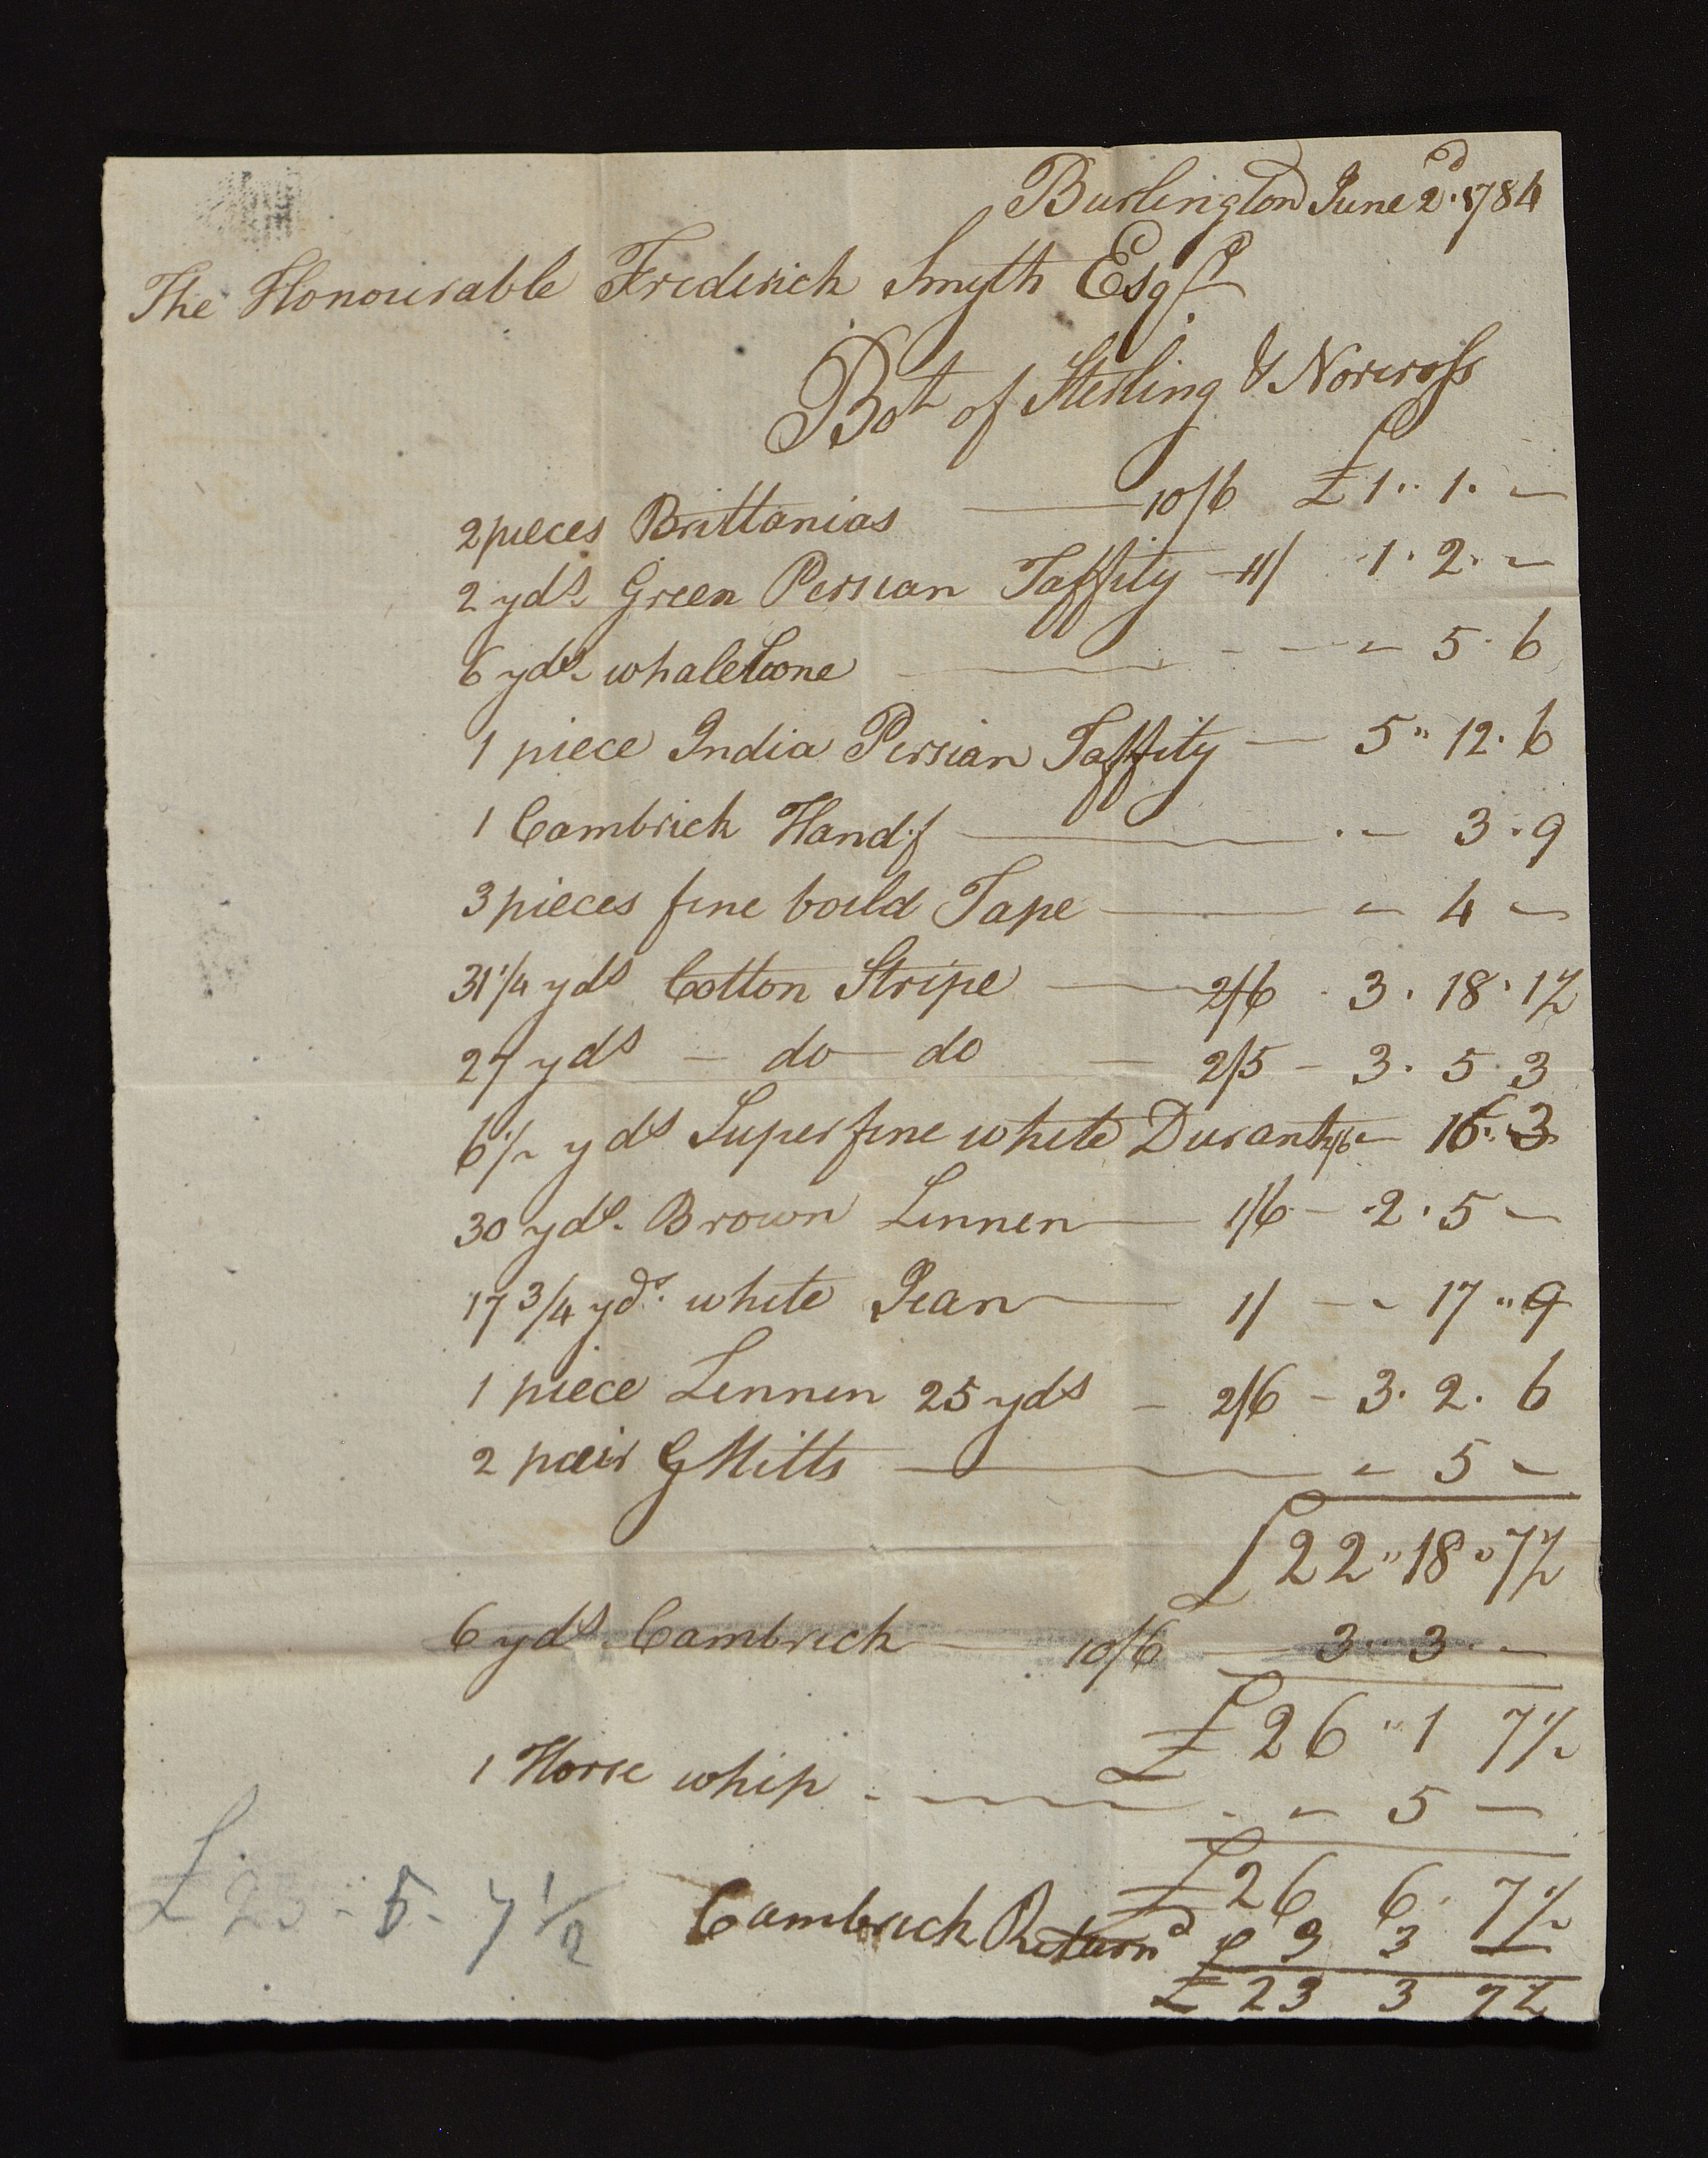 Burlington June 2d. 1784
The Honourable Frederick Smyth Esqr
Bot of Sterling & Norcross
2 pieces Brittanias 10/6 £ 1 .. 1 . -
2 yds Green Persian Taffity 11/ 1 . 2 . -
6 yds whalebone - 5 . 6
1 piece India Persian Taffity - 5 " 12 . 6
1 Cambrick Handf - 3 . 9
3 pieces fine boild Tape - 4 -
31 1/4 yds Cotton Stripe 2/6 3 . 18 . 1 1/2
27 yds - do do - 2/5 - 3 . 5 . 3
6 1/2 yds Superfine white Durant 2/6 - 16 . 3
30 yds. Brown Linnen 1/6 - 2 . 5 -
17 3/4 yds. white Jean 1/ - - 17 " 9
1 piece Linnen 25 yds - 2/6 - 3 . 2 . 6
2 pair G Mitts - 5 -
£ 22 " 18 " 7 1/2
6 yds Cambrick 10/6 3 . 3 . -
£ 26 " 1 7 1/2
1 Horse whip - 5 -
£ 26 6 7 1/2
Cambrick Returnd £ 3 3 -
£ 23 3 7 1/2
£ 23 - 5 - 7 1/2